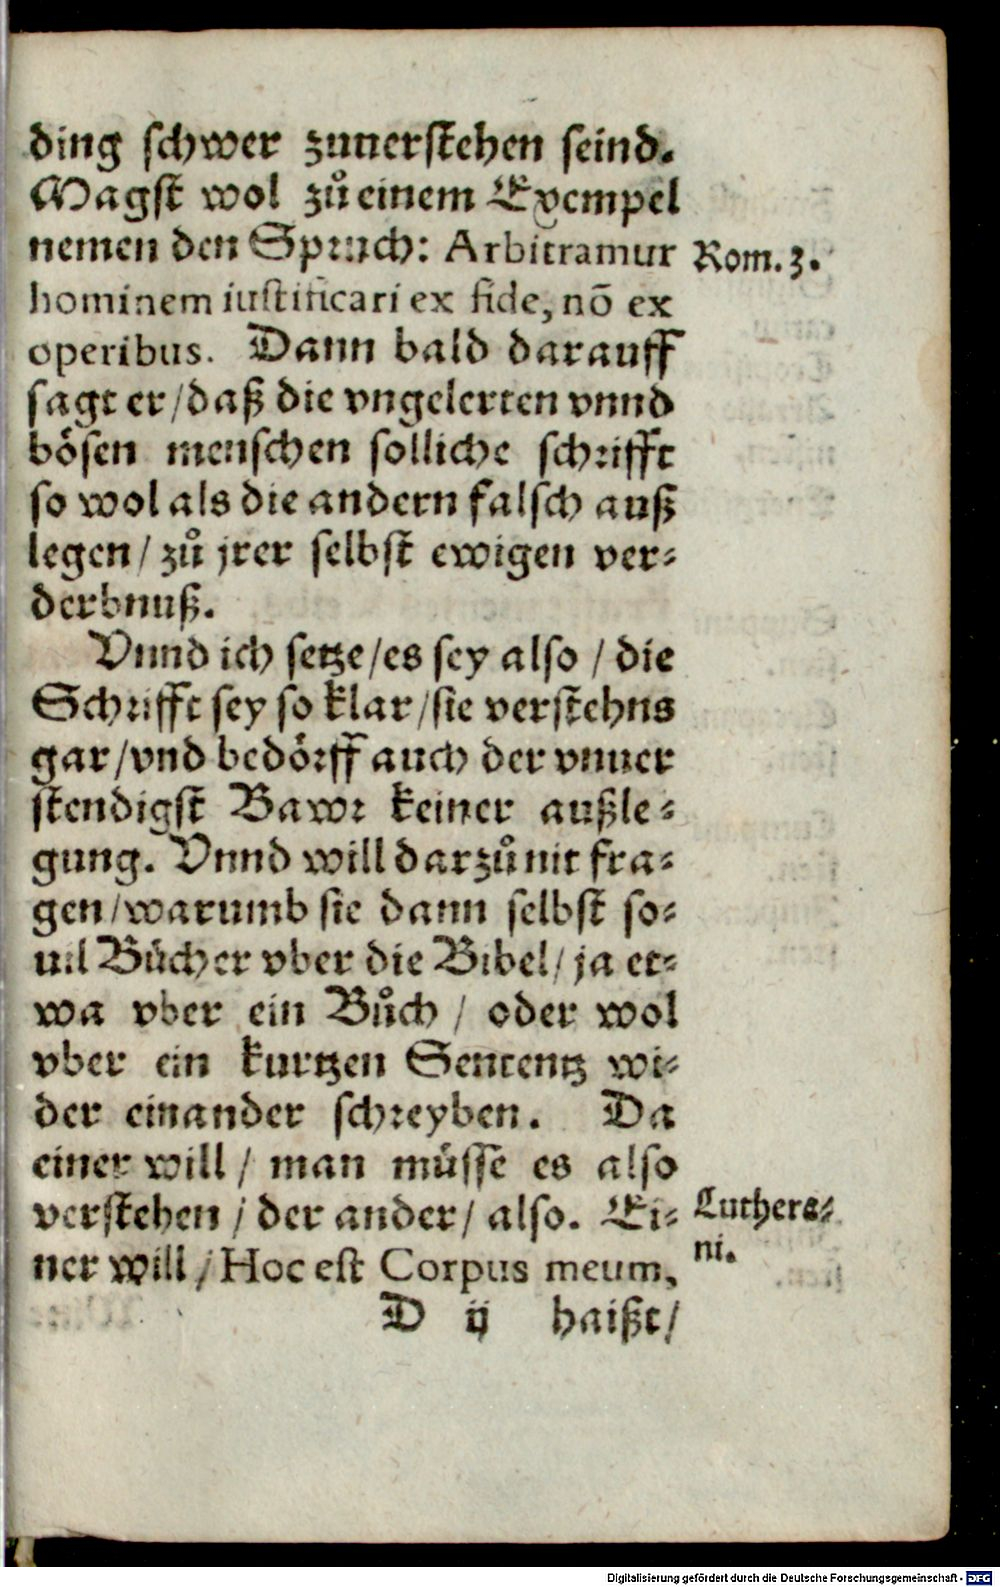 ding schwer zuuerstehen seind.
Magst wol zů einem Exempel
nemen den Spruch: Arbitramur
Rom. 3.
hominem iustificari ex fide, nō ex
operibus. Dann bald darauff
sagt er/daß die vngelerten vnnd
bösen menschen solliche schrifft
so wol als die andern falsch auß
legen/ zů jrer selbst ewigen ver-
derbnuß.
Vnnd ich setze/es sey also / die
Schrifft sey so klar/sie verstehns
gar/vnd bedörff auch der vnuer
stendigst Bawr keiner außle-
gung. Vnnd will darzů nit fra-
gen/warumb sie dann selbst so-
uil Bücher vber die Bibel/ ja et-
wa vber ein Bůch / oder wol
vber ein kurtzen Sententz wi-
der einander schreyben. Da
einer will / man müsse es also
verstehen / der ander/ also. Ei-
Luthera-
ni.
ner will / Hoc est Corpus meum,
D ij haißt/
Digitalisierung gefördert durch die Deutsche Forschungsgemeinschaft - DFG